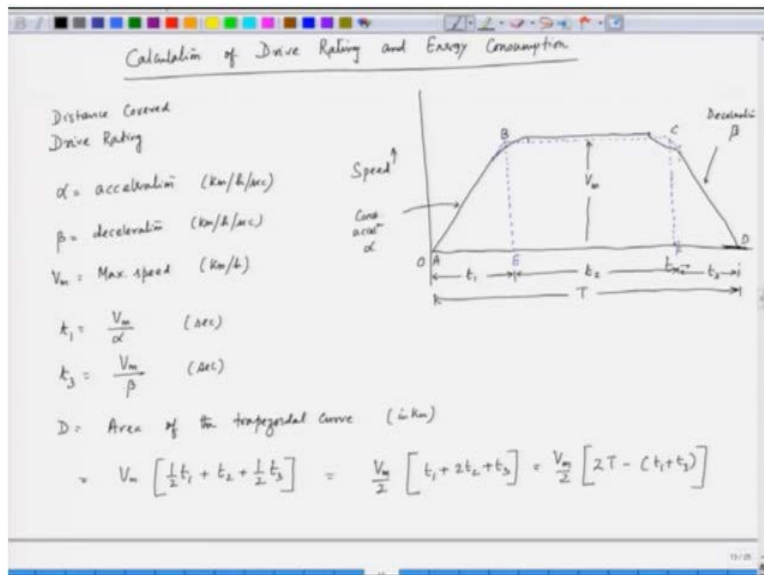 Calculation of Drive Rating and Energy Consumption
Distance Covered
Drive Rating
α = acceleration (Km/h/sec)
β = deceleration (Km/h/sec)
Vm = Max. speed (Km/h)
t1 = Vm/α (sec)
t3 = Vm/β (sec)
D = Area of the trapezoidal curve (in Km)
= Vm [1/2 t1 + t2 + 1/2 t3] = Vm/2 [t1 + 2t2 + t3] = Vm/2 [2T - (t1+t3)]
Speed
Const
accelⁿ
α
B
C
Deceleratiⁿ
β
Vm
O
A
E
D
t1
t2
t3
T
13/25